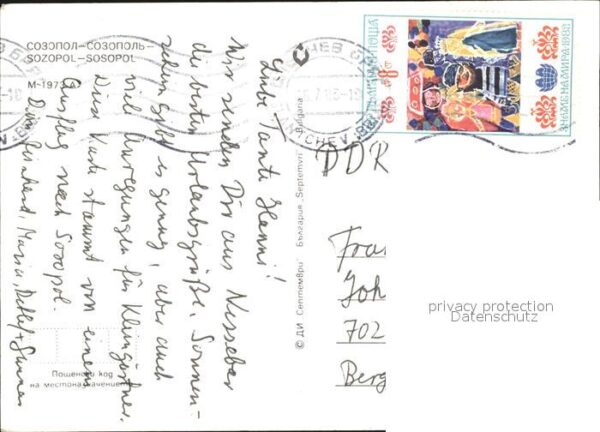 СОЗОПОЛ—СОЗОПОЛЬ—
SOZOPOL—SOSOPOL
M-1972-A
Liebe Tante Hanni!
Wir senden Dir aus Nesseber
die besten Urlaubsgrüße. Sonnen-
schein gibt es genug, aber auch
viel Anregungen für Kleingärtner.
Diese Karte stammt von einem
Ausflug nach Sosopol.
Maria, Detlef +
Пощенски код
на местоназначението
© ДИ „Септември" България „Septemvri" Bulgaria
ПОЩА
8
ЗНАМЕ НА МИРА 1988
DDR
Frau
Joh
702
Berg
privacy protection
Datenschutz